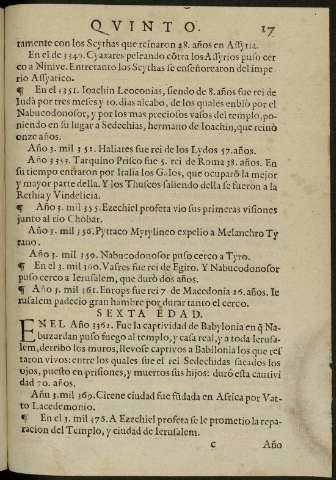 QVINTO. 17
tamente con los Scythas que reinaron 28. años en Assyria.
En el de 3349. Cyaxares peleando cõtra los Assyrios puso cer
co a Ninive. Entretanto los Scythas se enseñorearon del impe
rio Assyatico.
¶ En el 3351. Ioachin Leoconias, siendo de 8. años fue rei de
Iudà por tres meses y 10. dias alcabo, de los quales enbiò por el
Nabucodonosor, y por los mas preciosos vasos del templo, po-
niendo en su lugar a Sedechias, hermano de Ioachin, que reinò
onze años.
Año 3. mil 351. Haliates fue rei de los Lydos 57. años.
Año 3353. Tarquino Prisco fue 5. rei de Roma 38. años. En
su tiempo entraron por Italia los Galos, que ocuparõ la mejor
y mayor parte della. Y los Thuscos saliendo della se fueron a la
Rethia y Vindelicia.
¶ Año 3. mil 355. Ezechiel profeta vio sus primeras visiones
junto al rio Chobar.
Año 3. mil 356. Pyttaco Mytylineo expelio a Melanchro Ty
rano.
Año 3. mil 359. Nabucodonosor puso cerco a Tyro.
¶ En el 3. mil 360. Vafres fue rei de Egito. Y Nabucodonosor
puso cerco a Ierusalem, que durò dos años.
¶ Año 3. mil 361. Europs fue rei 7 de Macedonia 26. años. Ie
rusalem padecio gran hambre por durar tanto el cerco.
SEXTA EDAD.
EN EL Año 3362. Fue la captividad de Babylonia en q̃ Na-
buzardan puso fuego al templo, y casa real, y a toda Ierusa-
lem, derribo los muros, llevose captivos a Babilonia los que res
taron vivos: entre los quales fue el rei Sedechidas sacados los
ojos, puesto en prisiones, y muertos sus hijos: durò esta cautivi
dad 70. años.
Año 3. mil 369. Cirene ciudad fue fũdada en Africa por Vat-
to Lacedemonio.
¶ En el 3. mil 376. A Ezechiel profeta se le prometio la repa-
racion del Templo, y ciudad de Ierusalem.
C Año